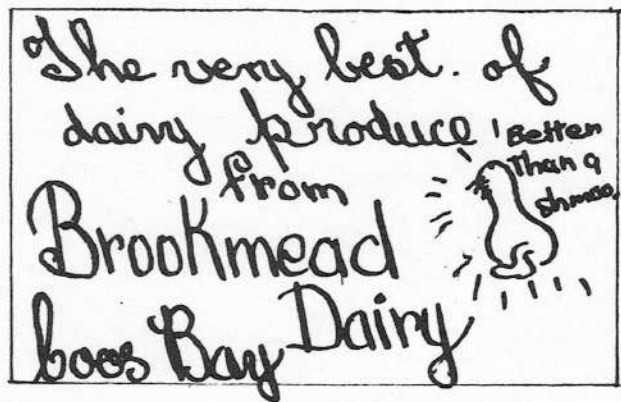 The very best. of
dairy produce
from
Brookmead
Coos Bay Dairy
Better
Than a
shmoo.